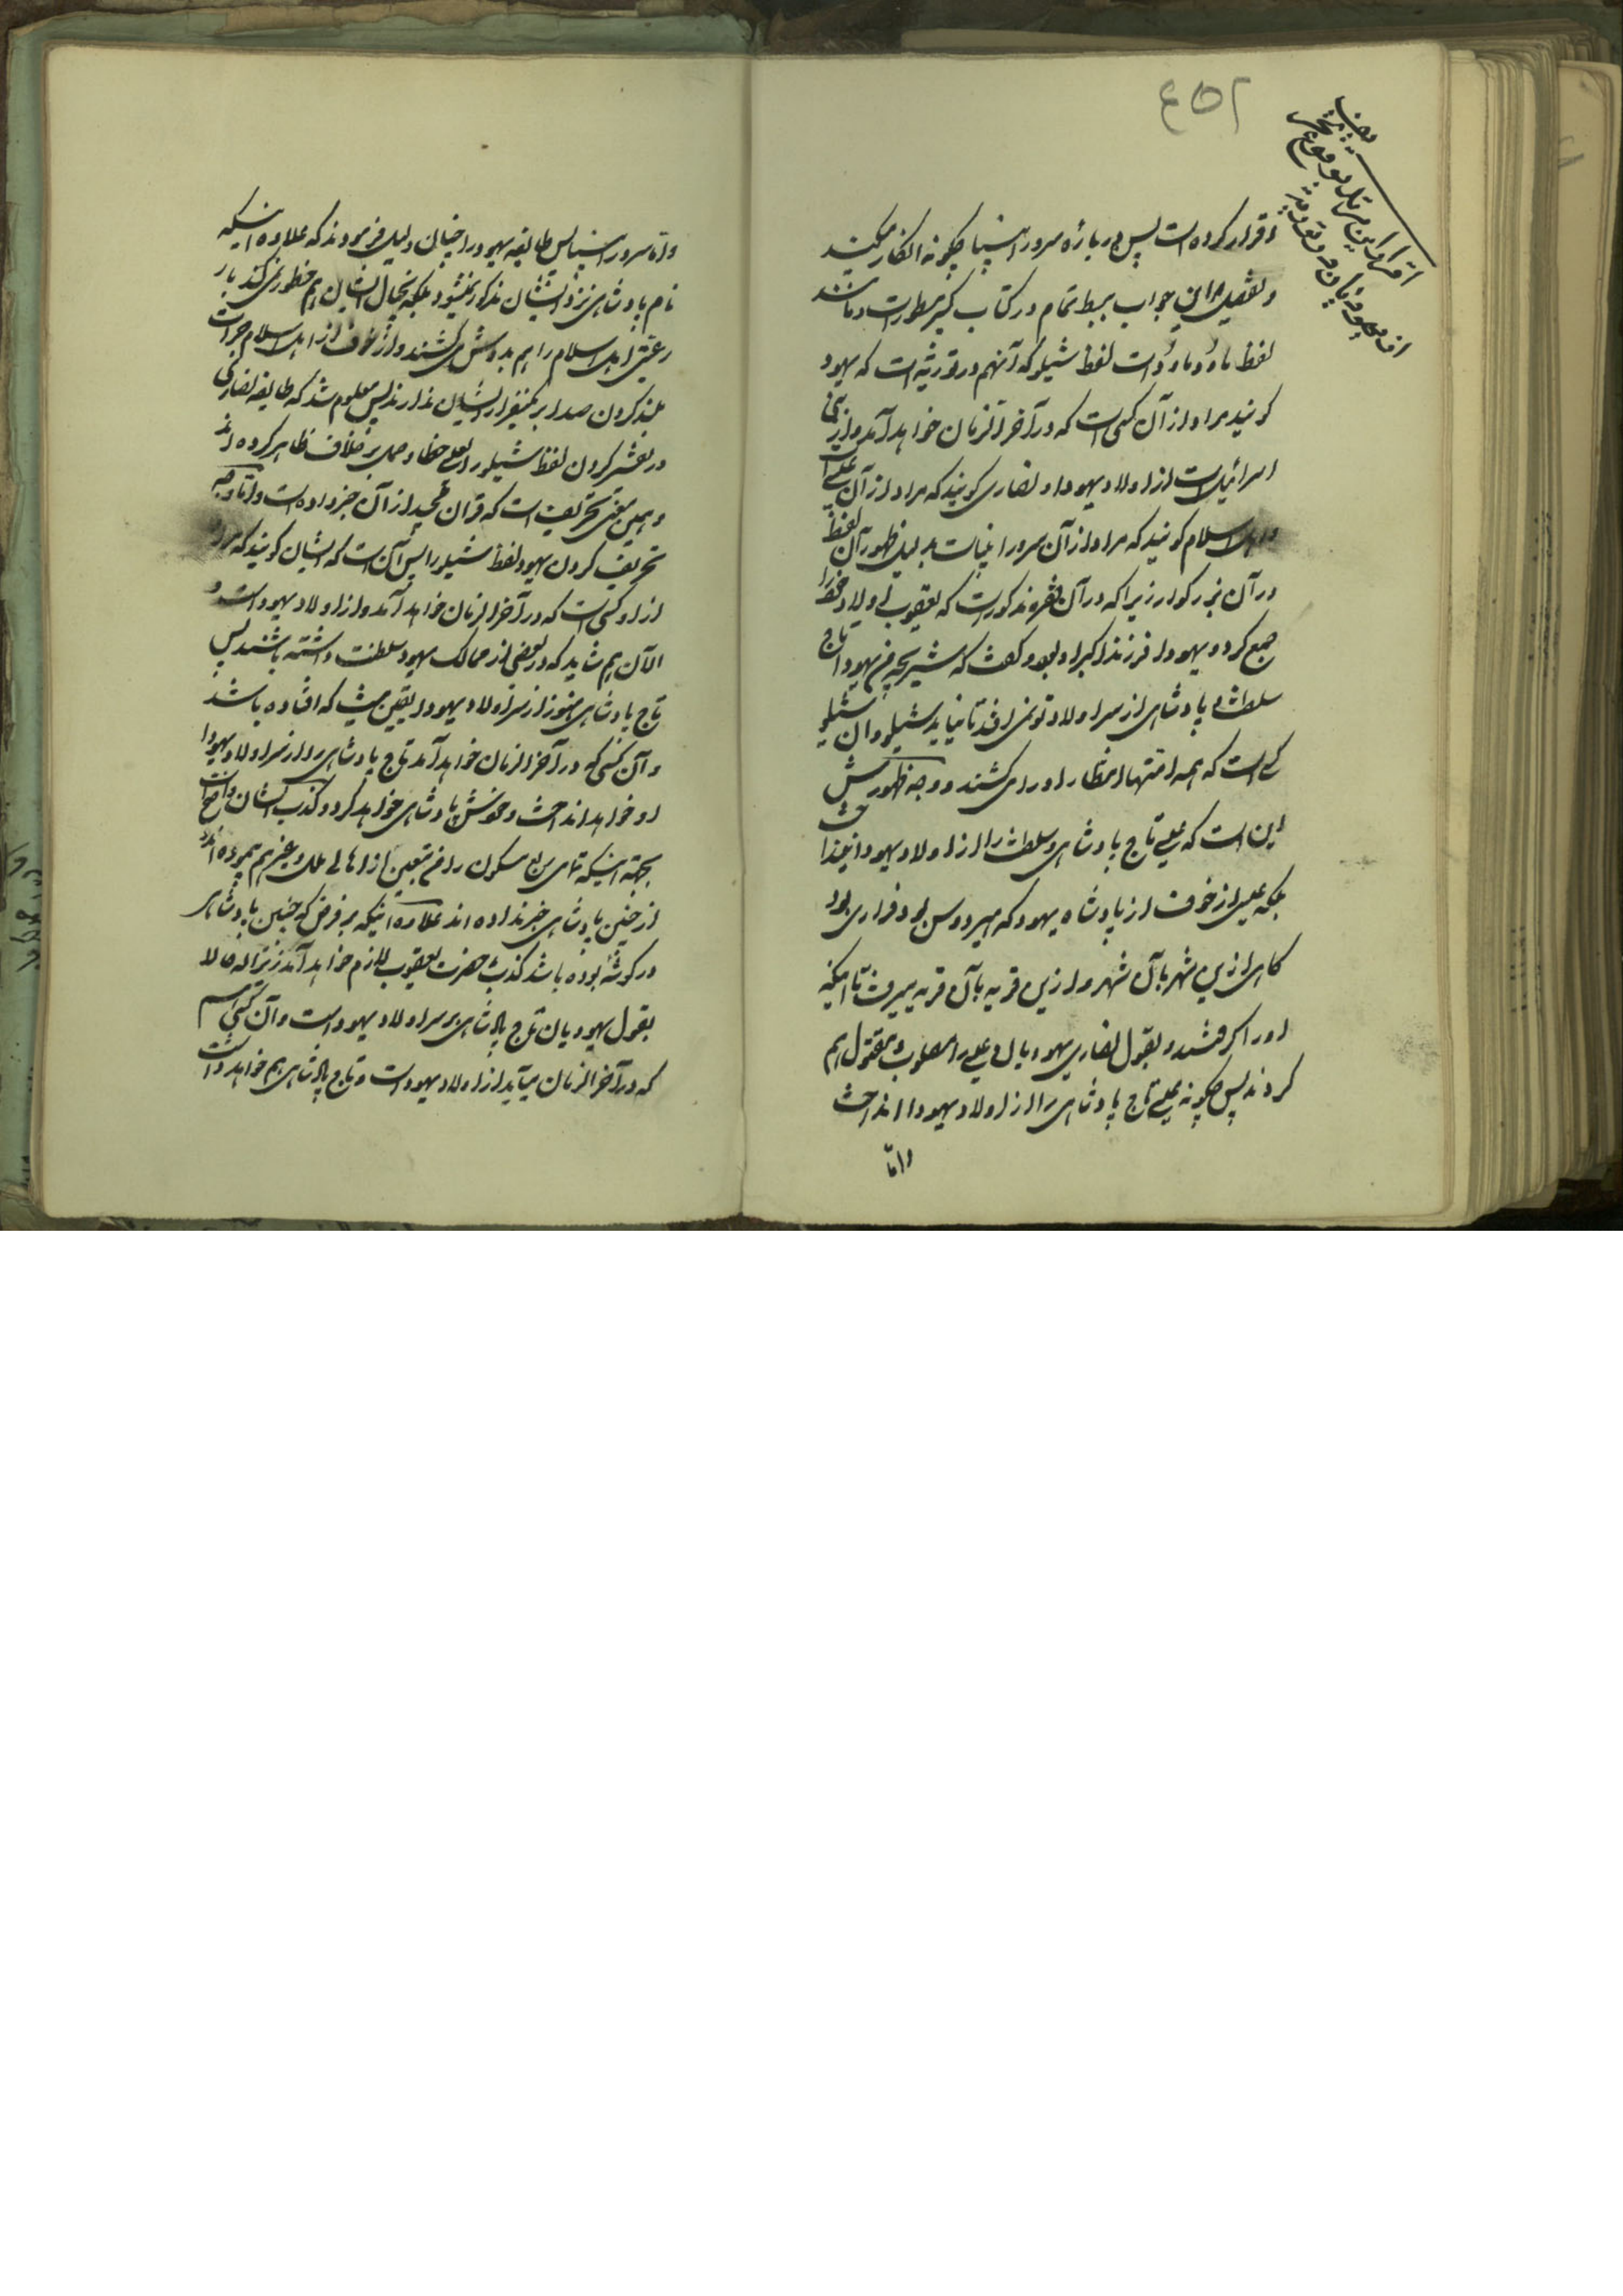 ۴۵۲
اقرار کرده است پس در باره سرور انبیا چگونه انکار میکنید
و تفصیل این جواب ببسط تمام در کتاب کبیر مسطور است و مانند
لفظ مادد مادد است لفظ شیلو که آنهم در توریة است که یهود
گویند مراد از آن کسی است که در آخر الزمان خواهد آمد و از بنی
اسرائیل است از اولاد یهودا و نصاری گویند که مراد از آن عیسی
و اهل اسلام گویند که مراد از آن سرور انبیاست بدلیل ظهور آن لفظ
در آن بزرگوار زیرا که در آن فقره مذکور است که یعقوب اولاد خود را
جمع کرد و یهودا فرزند اکبر او بود و گفت که شیر بچه من یهودا تاج
سلطنت و پادشاهی از سر اولاد تو نمی افتد تا نیاید شیلو و آن شیلو
کسی است که همه امتها انتظار او را می کشند و وجه ظهورش
این است که عیسی تاج پادشاهی و سلطنت را از اولاد یهودا نینداخت
بلکه عیسی از خوف از پادشاه یهود که هیردوس بود فراری بود
گاهی از این شهر بآن شهر و از این قریه بآن قریه میرفت تا اینکه
او را گرفتند و بقول نصاری یهودیان عیسی را مصلوب و مقتول هم
کردند پس چگونه عیسی تاج پادشاهی را از اولاد یهودا انداخت
و امّا
و امّا سرور انبیا پس طایفه یهود را چنان ذلیل فرمودند که علاوه اینکه
نام پادشاهی نزد ایشان مذکور نمیشود بلکه بخیال ایشان هم خطور نمی کند بار
رعیتی اهل اسلام را هم بدوش می کشند و از خوف از اهل اسلام جرأت
بلند کردن صدا بر کمتر از ایشان ندارند پس معلوم شد که طایفه نصاری
در تفسیر کردن لفظ شیلو را بعیسی خطا و حمل بر خلاف ظاهر کرده اند
و همین معنی تحریف است که قرآن مجید از آن خبر داده است و امّا وجه
تحریف کردن یهود لفظ شیلو را پس آن است که ایشان گویند که مراد
از او کسی است که در آخر الزمان خواهد آمد و از اولاد یهودا است و
الآن هم شاید که در بعضی از ممالک یهود سلطنت داشته باشند پس
تاج پادشاهی هنوز از سر اولاد یهودا یقین نیست که افتاده باشد
و آن کسی که در آخر الزمان خواهد آمد تاج پادشاهی را از سر اولاد یهودا
او خواهد انداخت و خودش پادشاهی خواهد کرد و کذب ایشان واضح است
بجهة اینکه تمامی ربع مسکون را غیر متبعین از اهالی ملل و غیر هم پیموده اند
از چنین پادشاهی خبر نداده اند علاوه اینکه بر فرض که چنین پادشاهی
در گوشه بوده باشد کذب حضرت یعقوب لازم خواهد آمد زیرا که حالا
بقول یهودیان تاج پادشاهی بر سر اولاد یهودا است و آن کسی هم
که در آخر الزمان میآید از اولاد یهودا است و تاج پادشاهی هم خواهد داشت